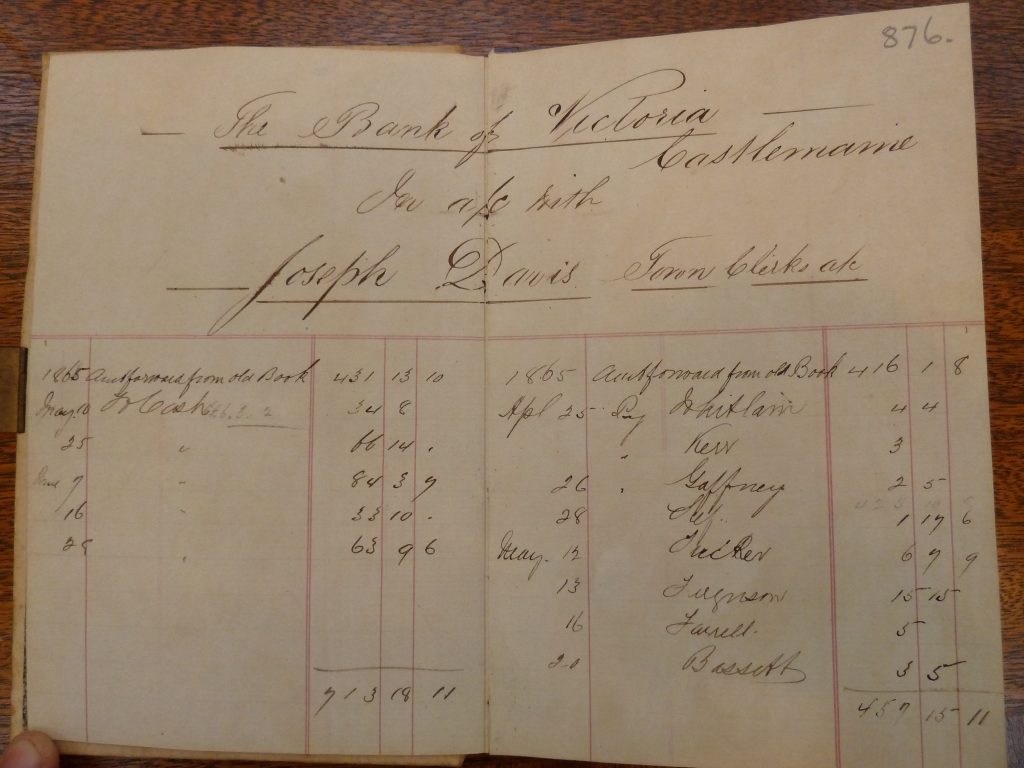 876.
The Bank of Victoria
Castlemaine
In a/c with
Joseph Davis Town Clerks a/c
1865 Amt forward from old Book 431 13 10
May 10 To Cash 34 8
25 " 66 14 .
June 7 " 84 3 7
16 " 33 10 .
28 " 63 9 6
713 18 11
1865 Amt forward from old Book 416 1 8
Apl 25 Pay Whitlam 4 4
" Kerr 3
26 " Gaffney 2 5
28 1 17 6
May. 12 Tucker 6 7 9
13 Ferguson 15 15
16 Farrell. 5
20 Bassett 3 5
457 15 11